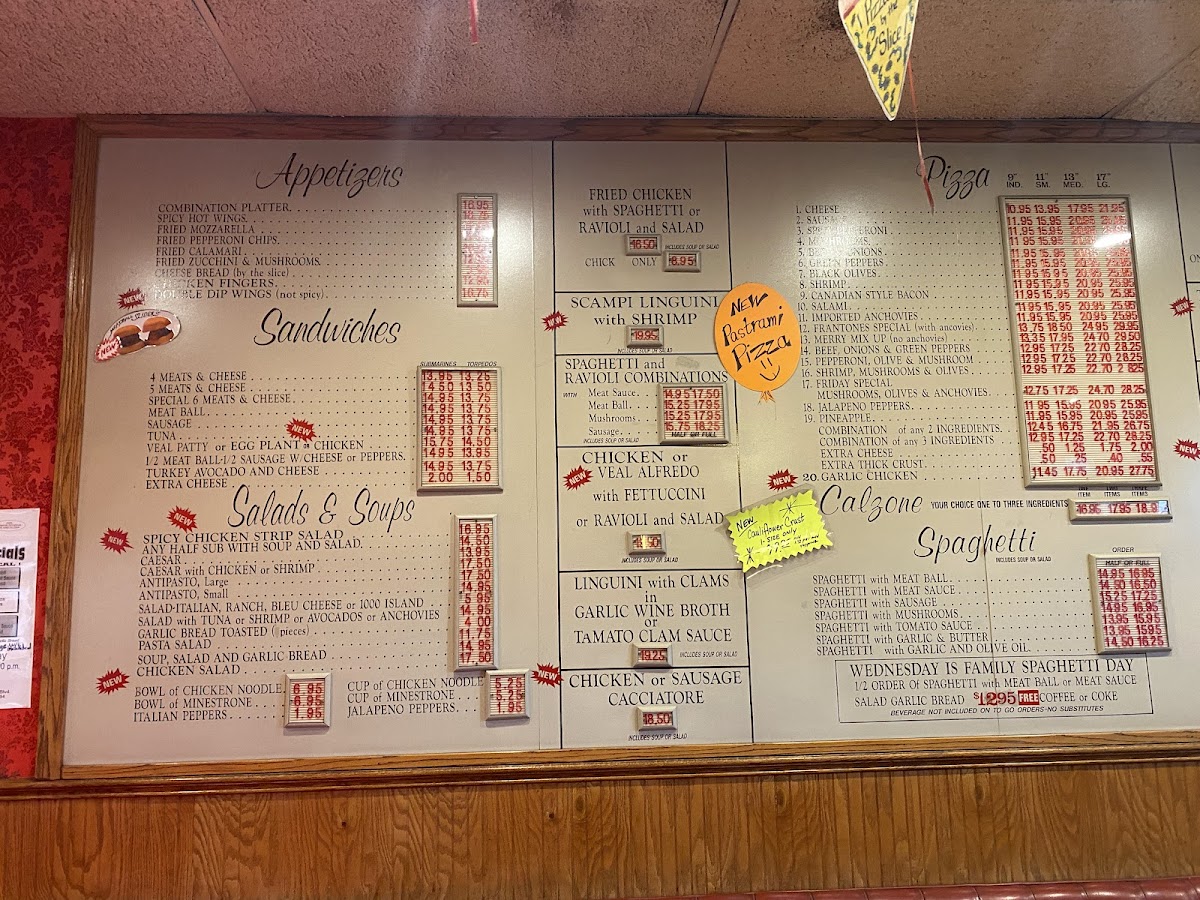 Pizza
by the
Slice
Appetizers
COMBINATION PLATTER 16.95
SPICY HOT WINGS
FRIED MOZZARELLA
FRIED PEPPERONI CHIPS
FRIED CALAMARI
FRIED ZUCCHINI & MUSHROOMS
CHEESE BREAD (by the slice)
CHICKEN FINGERS
DOUBLE DIP WINGS (not spicy)
NEW
NEW
Sandwiches
SUBMARINES TORPEDOS
4 MEATS & CHEESE 13.95 13.25
5 MEATS & CHEESE 14.50 13.50
SPECIAL 6 MEATS & CHEESE 14.95 13.75
MEAT BALL 14.95 13.75
SAUSAGE 14.95 13.75
TUNA 14.95 13.75
NEW
VEAL PATTY or EGG PLANT or CHICKEN 15.75 14.50
1/2 MEAT BALL-1/2 SAUSAGE W/CHEESE or PEPPERS 14.95 13.95
TURKEY AVOCADO AND CHEESE 14.95 13.75
EXTRA CHEESE 2.00 1.50
Salads & Soups
NEW
NEW
SPICY CHICKEN STRIP SALAD 16.95
ANY HALF SUB WITH SOUP AND SALAD 14.50
CAESAR 13.95
CAESAR with CHICKEN or SHRIMP 17.50
ANTIPASTO, Large 17.50
ANTIPASTO, Small 14.95
SALAD-ITALIAN, RANCH, BLEU CHEESE or 1000 ISLAND 5.95
SALAD with TUNA or SHRIMP or AVOCADOS or ANCHOVIES 14.95
GARLIC BREAD TOASTED (pieces) 4.00
PASTA SALAD 11.75
SOUP, SALAD AND GARLIC BREAD 14.95
CHICKEN SALAD 17.50
NEW
BOWL of CHICKEN NOODLE 6.95
BOWL of MINESTRONE 6.95
ITALIAN PEPPERS 1.95
CUP of CHICKEN NOODLE 5.25
CUP of MINESTRONE 5.25
JALAPENO PEPPERS 1.95
FRIED CHICKEN
with SPAGHETTI or
RAVIOLI and SALAD
16.50 INCLUDES SOUP OR SALAD
CHICK ONLY 8.95
NEW
SCAMPI LINGUINI
with SHRIMP
19.95
INCLUDES SOUP OR SALAD
SPAGHETTI and
RAVIOLI COMBINATIONS
WITH Meat Sauce 14.95 17.50
Meat Ball 15.25 17.95
Mushrooms 15.25 17.95
Sausage 15.75 18.25
HALF OR FULL
INCLUDES SOUP OR SALAD
NEW
CHICKEN or
VEAL ALFREDO
with FETTUCCINI
or RAVIOLI and SALAD
INCLUDES SOUP OR SALAD
LINGUINI with CLAMS
in
GARLIC WINE BROTH
or
TAMATO CLAM SAUCE
19.25 INCLUDES SOUP OR SALAD
NEW
CHICKEN or SAUSAGE
CACCIATORE
18.50
INCLUDES SOUP OR SALAD
NEW
Pastrami
Pizza
Pizza
9" 11" 13" 17"
IND. SM. MED. LG.
1. CHEESE 10.95 13.95 17.95 21.95
2. SAUSAGE 11.95 15.95
3. SPICY PEPPERONI 11.95 15.95
4. MUSHROOMS 11.95 15.95
5. ONIONS 11.95 15.95
6. GREEN PEPPERS 11.95 15.95
7. BLACK OLIVES 11.95 15.95 20.95 25.95
8. SHRIMP 11.95 15.95 20.95 25.95
9. CANADIAN STYLE BACON 11.95 15.95 20.95 25.95
10. SALAMI 11.95 15.95 20.95 25.95
11. IMPORTED ANCHOVIES 11.95 15.95 20.95 25.95
12. FRANTONES SPECIAL (with ancovies) 13.75 18.50 24.95 29.95
13. MERRY MIX UP (no anchovies) 13.35 17.95 24.70 28.50
14. BEEF, ONIONS & GREEN PEPPERS 12.95 17.25 22.70 28.25
15. PEPPERONI, OLIVE & MUSHROOM 12.95 17.25 22.70 28.25
16. SHRIMP, MUSHROOMS & OLIVES 12.95 17.25 22.70 28.25
17. FRIDAY SPECIAL
MUSHROOMS, OLIVES & ANCHOVIES 42.75 17.25 24.70 28.25
18. JALAPENO PEPPERS 11.95 15.95 20.95 25.95
19. PINEAPPLE 11.95 15.95 20.95 25.95
COMBINATION of any 2 INGREDIENTS 12.45 16.75 21.95 26.75
COMBINATION of any 3 INGREDIENTS 12.95 17.25 22.70 28.25
EXTRA CHEESE .50 1.25 1.75 2.00
EXTRA THICK CRUST .50 .25 .40 .55
NEW
20. GARLIC CHICKEN 11.45 17.75 20.95 27.75
NEW
Cauliflower Crust
1-SIZE ONLY
Calzone YOUR CHOICE ONE TO THREE INGREDIENTS 16.95 17.95 18.9
ONE ITEM TWO ITEMS THREE ITEMS
Spaghetti
INCLUDES SOUP OR SALAD
ORDER
HALF OR FULL
SPAGHETTI with MEAT BALL 14.95 16.95
SPAGHETTI with MEAT SAUCE 14.50 16.50
SPAGHETTI with SAUSAGE 15.25 17.25
SPAGHETTI with MUSHROOMS 14.95 16.95
SPAGHETTI with TOMATO SAUCE 13.95 16.95
SPAGHETTI with GARLIC & BUTTER 13.95 15.95
SPAGHETTI with GARLIC AND OLIVE OIL 14.50 16.50
WEDNESDAY IS FAMILY SPAGHETTI DAY
1/2 ORDER Of SPAGHETTI with MEAT BALL or MEAT SAUCE
SALAD GARLIC BREAD $12.95 FREE COFFEE or COKE
BEVERAGE NOT INCLUDED ON TO GO ORDERS-NO SUBSTITUTES
NEW
NEW